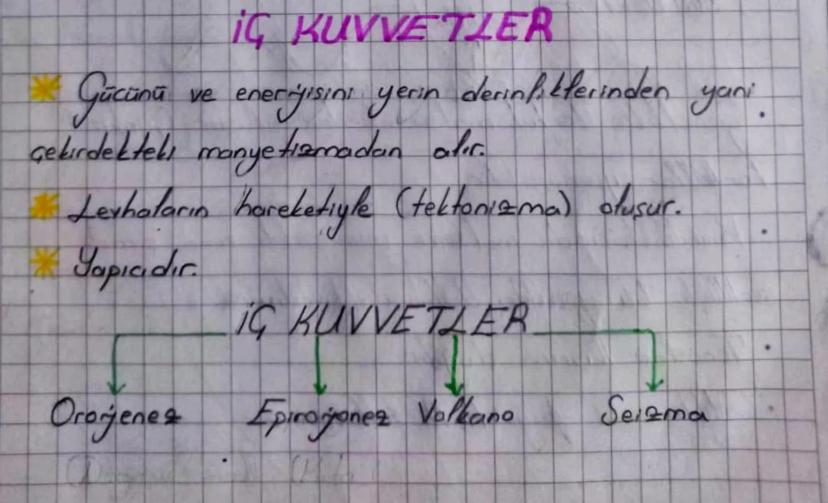 İÇ KUVVETLER
Gücünü ve enerjisini yerin derinliklerinden yani
çekirdekteki manyetizmadan alır.
Levhaların hareketiyle (tektonizma) oluşur.
Yapıcıdır.
İÇ KUVVETLER
Orojenez Epirojenez Volkano Seizma